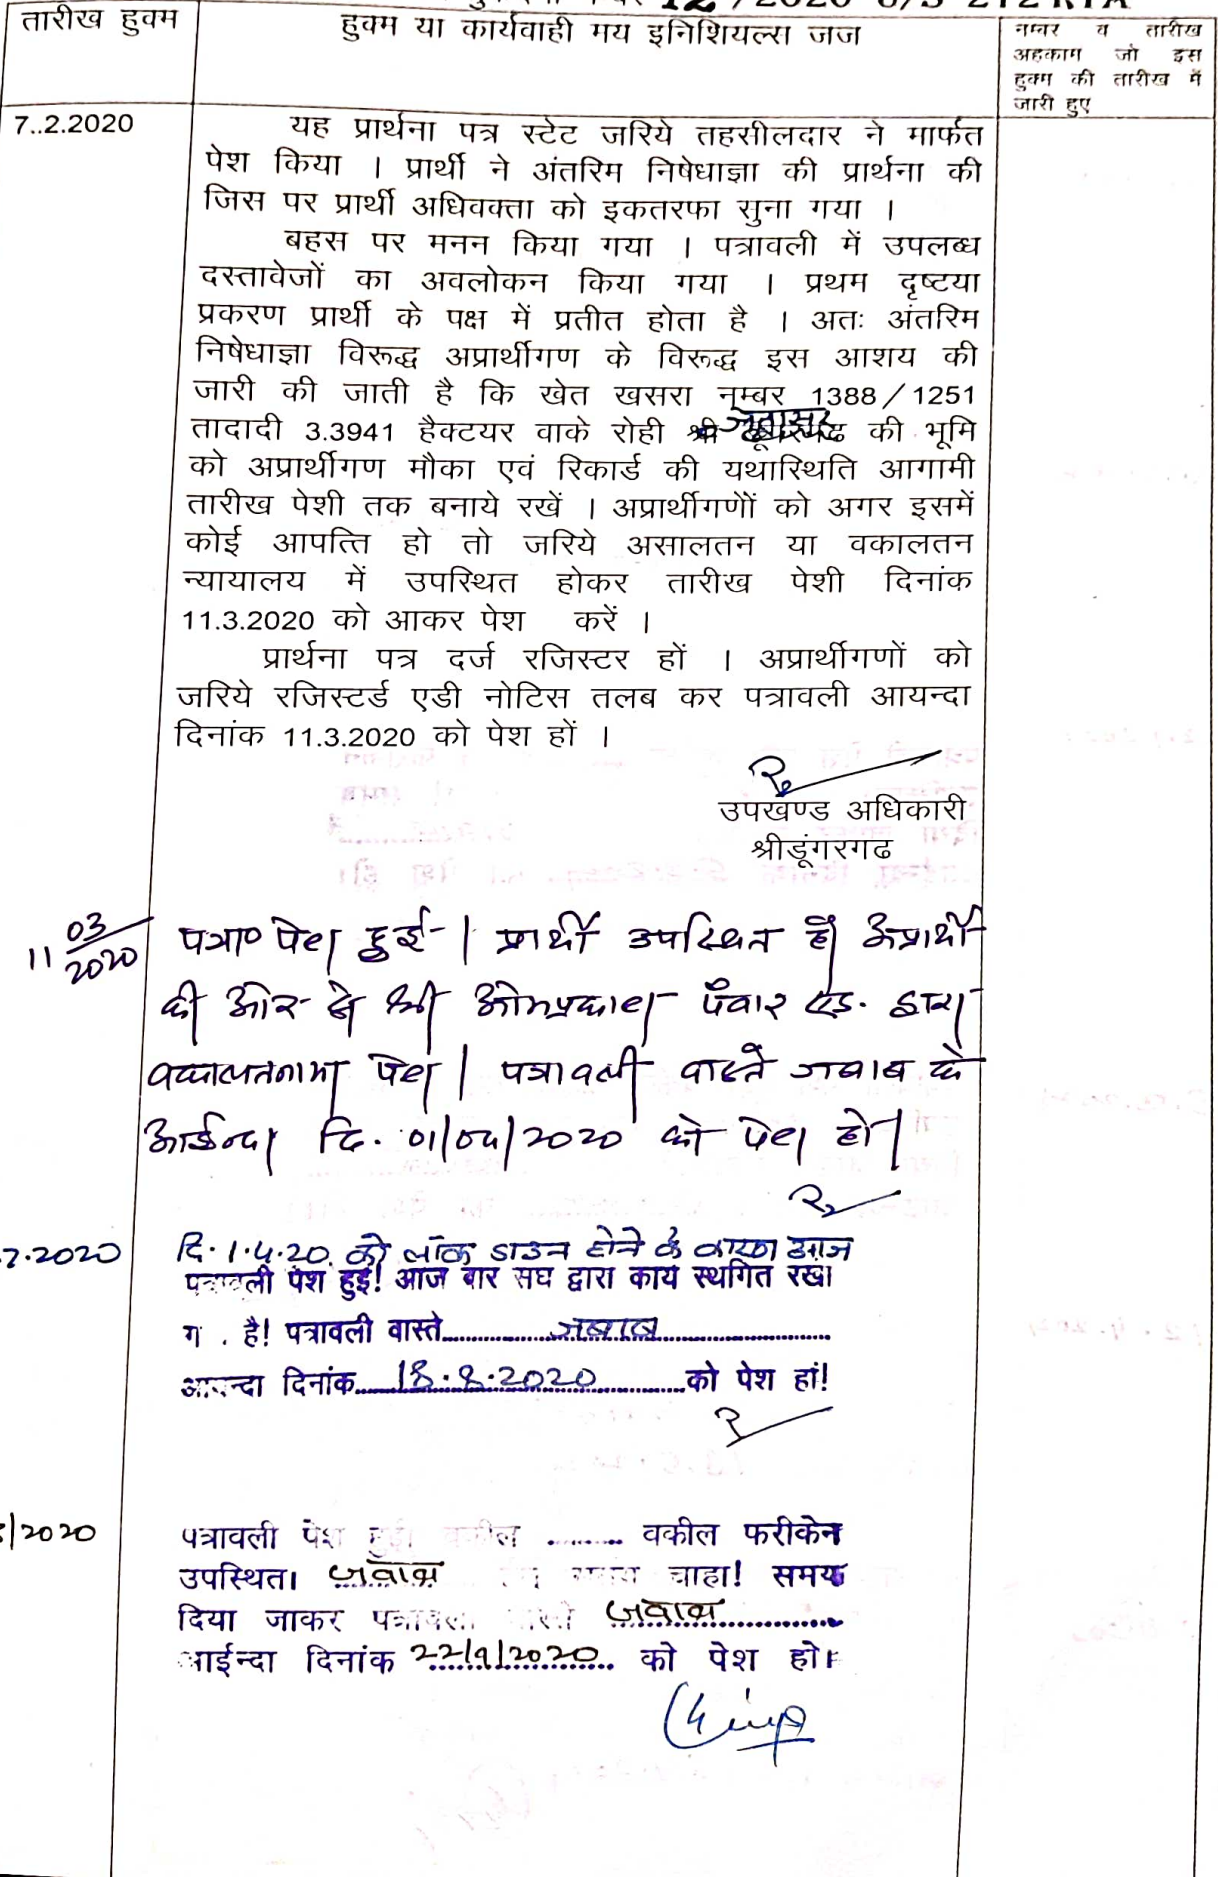 12/2020 U/S 212 RTA
तारीख हुक्म
हुक्म या कार्यवाही मय इनिशियल्स जज
नम्बर व तारीख
अहकाम जो इस
हुक्म की तारीख में
जारी हुए
7..2.2020
यह प्रार्थना पत्र स्टेट जरिये तहसीलदार ने मार्फत
पेश किया । प्रार्थी ने अंतरिम निषेधाज्ञा की प्रार्थना की
जिस पर प्रार्थी अधिवक्ता को इकतरफा सुना गया ।
बहस पर मनन किया गया । पत्रावली में उपलब्ध
दस्तावेजों का अवलोकन किया गया । प्रथम दृष्टया
प्रकरण प्रार्थी के पक्ष में प्रतीत होता है । अतः अंतरिम
निषेधाज्ञा विरूद्ध अप्रार्थीगण के विरूद्ध इस आशय की
जारी की जाती है कि खेत खसरा नम्बर 1388/1251
तादादी 3.3941 हैक्टयर वाके रोही की भूमि
को अप्रार्थीगण मौका एवं रिकार्ड की यथास्थिति आगामी
तारीख पेशी तक बनाये रखें । अप्रार्थीगणों को अगर इसमें
कोई आपत्ति हो तो जरिये असालतन या वकालतन
न्यायालय में उपस्थित होकर तारीख पेशी दिनांक
11.3.2020 को आकर पेश करें ।
प्रार्थना पत्र दर्ज रजिस्टर हों । अप्रार्थीगणों को
जरिये रजिस्टर्ड एडी नोटिस तलब कर पत्रावली आयन्दा
दिनांक 11.3.2020 को पेश हों ।
उपखण्ड अधिकारी
श्रीडूंगरगढ
11 03/2020
पत्रा० पेश हुई- । प्रार्थी उपस्थित है। अप्रार्थी
की ओर से श्री ओमप्रकाश पँवार एड. द्वारा
वकालतनामा पेश । पत्रावली वास्ते जवाब के
आईन्दा दि. 01/04/2020 को पेश हो।
7.2020
दि. 1.4.20. को लॉक डाउन होने के कारण आज
पत्रावली पेश हुई! आज बार संघ द्वारा कार्य स्थगित रखा
ग . है! पत्रावली वास्ते जबाब
आयन्दा दिनांक 18.8.2020 को पेश हां!
/2020
पत्रावली पेश हुई। वकील ......... वकील फरीकेन
उपस्थित। जवाब चाहा! समय
दिया जाकर पत्रावली वास्ते जवाब
आईन्दा दिनांक 22/9/2020 को पेश हो।